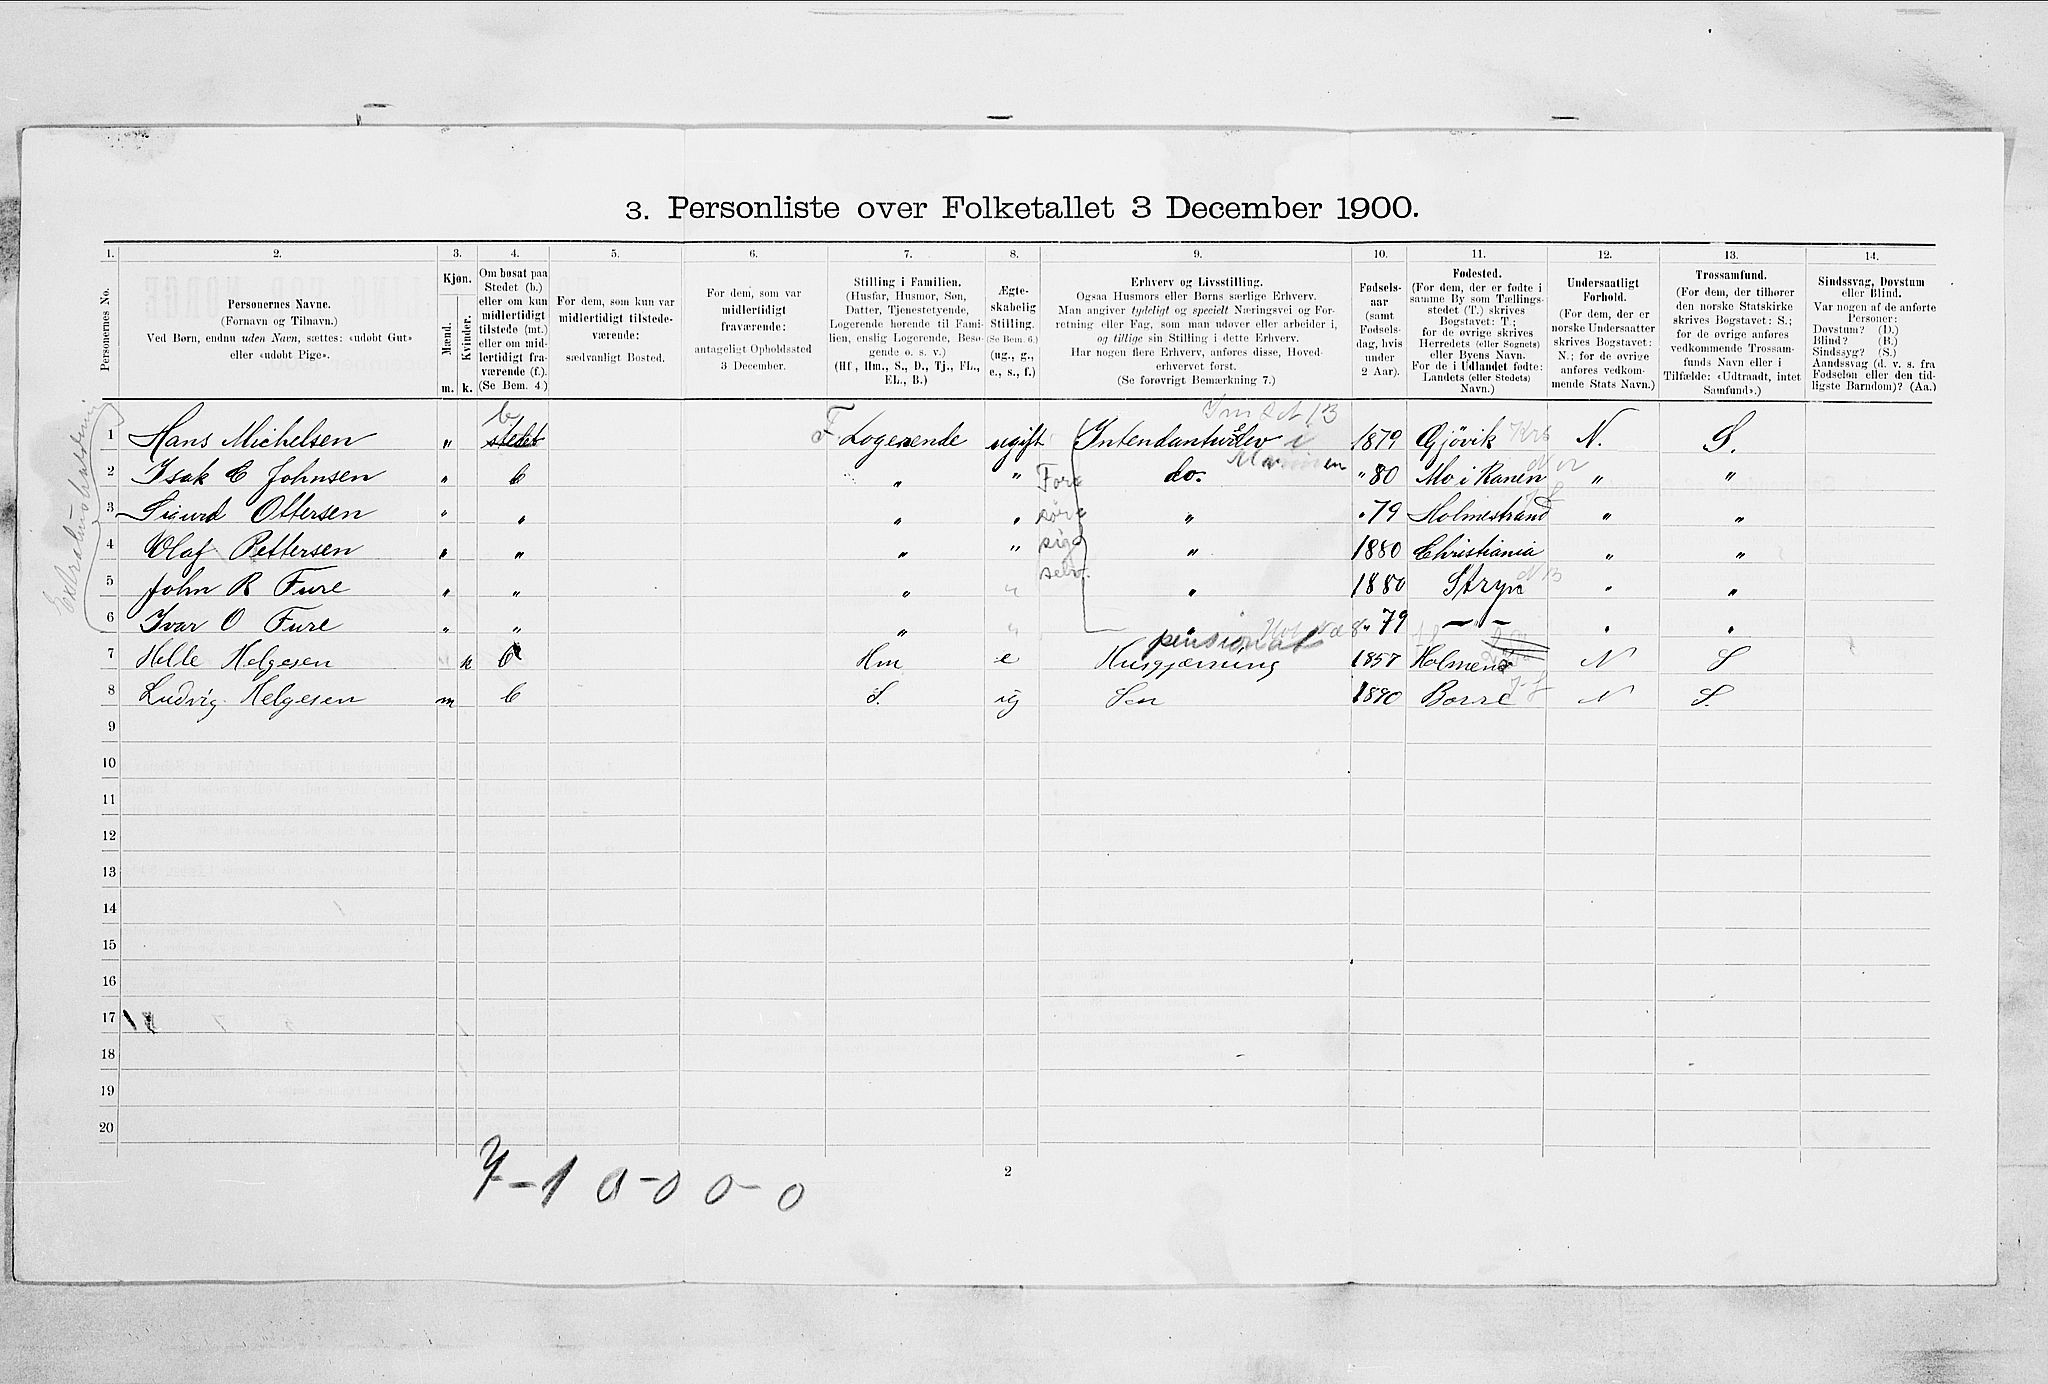 3. Personliste over Folketallet 3 December 1900.
1. 2. 3. 4. 5. 6. 7. 8. 9. 10. 11. 12. 13. 14.
Personernes No.
Personernes Navne.
(Fornavn og Tilnavn.)
Ved Børn, endnu uden Navn, sættes: «udøbt Gut»
eller «udøbt Pige».
Kjøn.
Mænd. Kvinder.
m. k.
Om bosat paa
Stedet (b.)
eller om kun
midlertidigt
tilstede (mt.)
eller om mid-
lertidigt fra-
værende (f.).
(Se Bem. 4.)
For dem, som kun var
midlertidigt tilstede-
værende:
sædvanligt Bosted.
For dem, som var
midlertidigt
fraværende:
antageligt Opholdssted
3 December.
Stilling i Familien.
(Husfar, Husmor, Søn,
Datter, Tjenestetyende,
Logerende hørende til Fami-
lien, enslig Logerende, Besø-
gende o. s. v.)
(Hf, Hm., S., D., Tj., FL.,
EL., B.)
Ægte-
skabelig
Stilling.
(Se Bem. 6.)
(ug., g.,
e., s., f.)
Erhverv og Livsstilling.
Ogsaa Husmors eller Børns særlige Erhverv.
Man angiver tydeligt og specielt Næringsvei og For-
retning eller Fag, som man udøver eller arbeider i,
og tillige sin Stilling i dette Erhverv.
Har nogen flere Erhverv, anføres disse, Hoved-
erhvervet først.
(Se forøvrigt Bemærkning 7.)
Fødsels-
aar
(samt
Fødsels-
dag, hvis
under
2 Aar).
Fødested.
(For dem, der er fødte i
samme By som Tællings-
stedet (T.) skrives
Bogstavet: T.;
for de øvrige skrives
Herredets (eller Sognets)
eller Byens Navn.
For de i Udlandet fødte:
Landets (eller Stedets)
Navn.)
Undersaatligt
Forhold.
(For dem, der er
norske Undersaatter
skrives Bogstavet:
N.; for de øvrige
anføres vedkom-
mende Stats Navn.)
Trossamfund.
(For dem, der tilhører
den norske Statskirke
skrives Bogstavet: S.;
for de øvrige anføres
vedkommende Trossam-
funds Navn eller i
Tilfælde: «Udtraadt, intet
Samfund».)
Sindssvag, Døvstum
eller Blind.
Var nogen af de anførte
Personer:
Døvstum? (D.)
Blind? (B.)
Sindssyg? (S.)
Aandssvag (d. v. s. fra
Fødselen eller den tid-
ligste Barndom)? (Aa.)
b
1 Hans Michelsen " stedet F Logerende ugift Intendanturelev i 1879 Gjøvik N. S.
2 Isak E Johnsen " b " " do. " 80 Mo i Ranen " "
3 Sigurd Ottersen " " " " " " 79 Holmestrand " "
4 Olaf Pettersen " " " " " 1880 Christiania " "
5 John R Fure " " " " " 1880 Stryn " "
6 Ivar O Fure " " " " " " 79 — — " "
Forsørg
sig
selv.
pensionat
7 Helle Helgesen k b Hm e Husgjerning 1857 Holmen N S
8 Ludvig Helgesen m b S. ug Søn 1890 Borre N S.
9
10
11
12
13
14
15
16
17
18
19
20
7-1 0-0 0-0
2